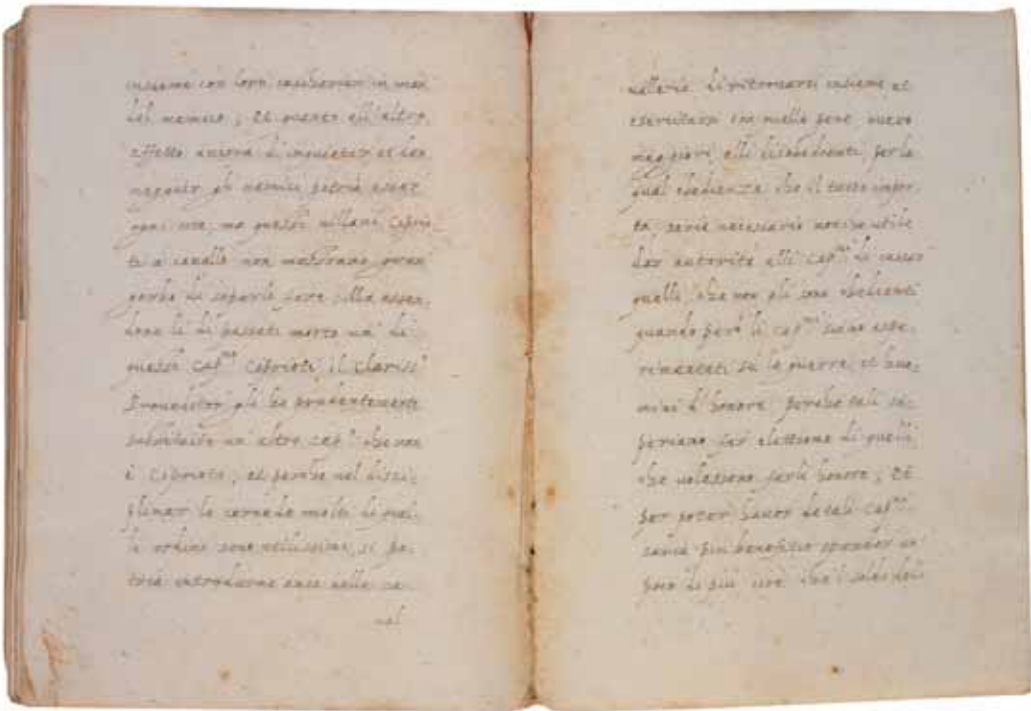 insieme con loro cascherian in man
del nemico; Et quanto all'altro
effetto ancora d'inquietar et dan
negiar gli nemici potria esser
ogni uno, ma questi villani Ciprio-
ti a cavallo non
perho di saperlo fare; alla essen-
done li dì passati morto un di
questi Cap.ni Ciprioti il clariss.o
Proveditor gli ha prudentemente
substituito un altro cap.o che non
è Cipriota; et perche nel disci-
plinar le cernede molti di quel-
li ordini sono utilissimi, si po-
tria introdurne anco nelle ca-
val
vallerie di ritrovarsi insieme et
esercitarsi con quelle pene
alli disobedienti per la
qual obedienza che il tutto impor-
ta, seria necessario utile
dar autorità alli cap.ni di cassar
quelli, che non gli sono obedienti
quando però li cap.ni siano espe-
rimentati su le guerre, et huo-
mini d'honore perche tali sa-
periano far elettione di quelli
che volessono farli honore; Et
per poter haver de tali cap.ni
saria più benefitio spender un
poco di più